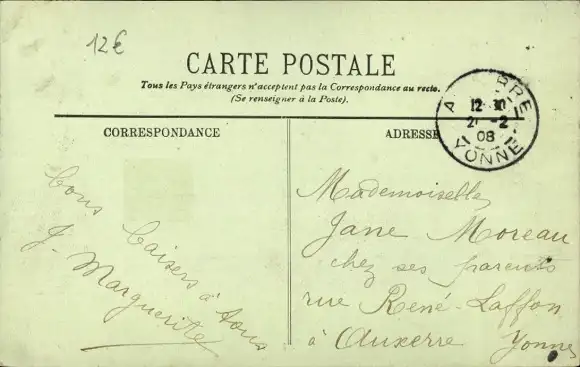 12€
CARTE POSTALE
Tous les Pays étrangers n'acceptent pas la Correspondance au recto.
(Se renseigner à la Poste).
CORRESPONDANCE
ADRESSE
12 30
21 -2
08
YONNE
Bons Baisers à tous
J. Marguerite
Mademoiselle
Jane Moreau
chez ses parents
rue René-Laffon
à Auxerre Yonne